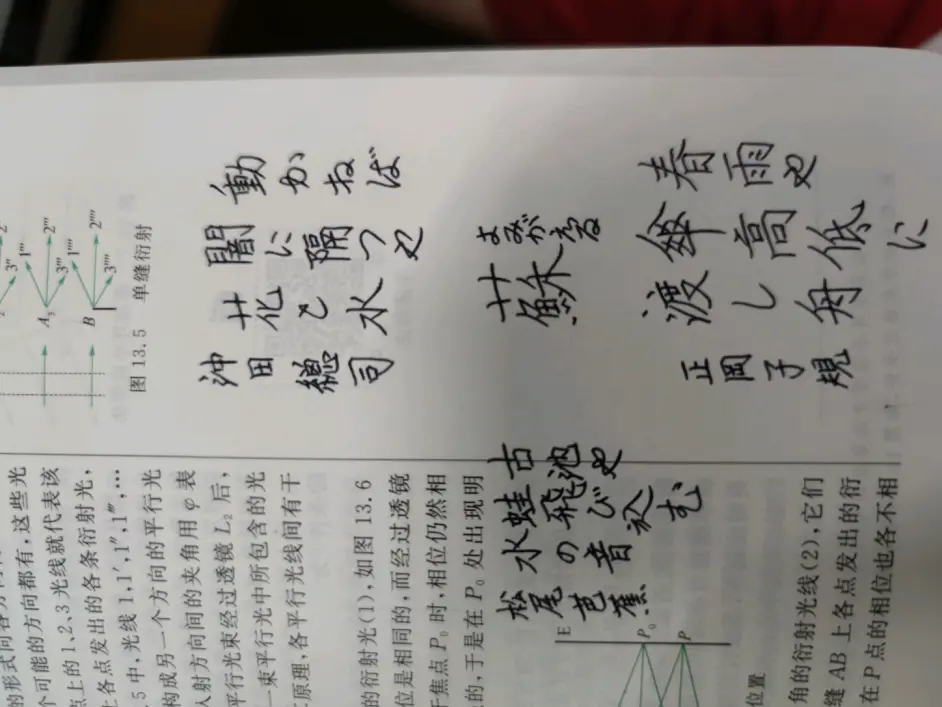 動かねば
闇に隔つや
花と水
沖田總司
よみがえる
蘇
春雨や
傘高低に
渡し舟
正岡子規
古池や
蛙飛び込む
水の音
松尾芭蕉
3″
1‴
2‴
A₃
3‴
1⁗
2⁗
B
3⁗
图 13.5 单缝衍射
个可能的方向都有,这些光
点上的 1、2、3 光线就代表该
上各点发出的各条衍射光,
5 中,光线 1,1′,1″,1‴,…
构成另一个方向的平行光
入射方向间的夹角用 φ 表
平行光束经过透镜 L₂ 后,
一束平行光中所包含的光
原理,各平行光线间有干
的衍射光(1),如图 13.6
位是相同的,而经过透镜
焦点 P₀ 时,相位仍然相
的,于是在 P₀ 处出现明
E
P₀
P
位置
角的衍射光线(2),它们
缝 AB 上各点发出的衍
在 P 点的相位也各不相